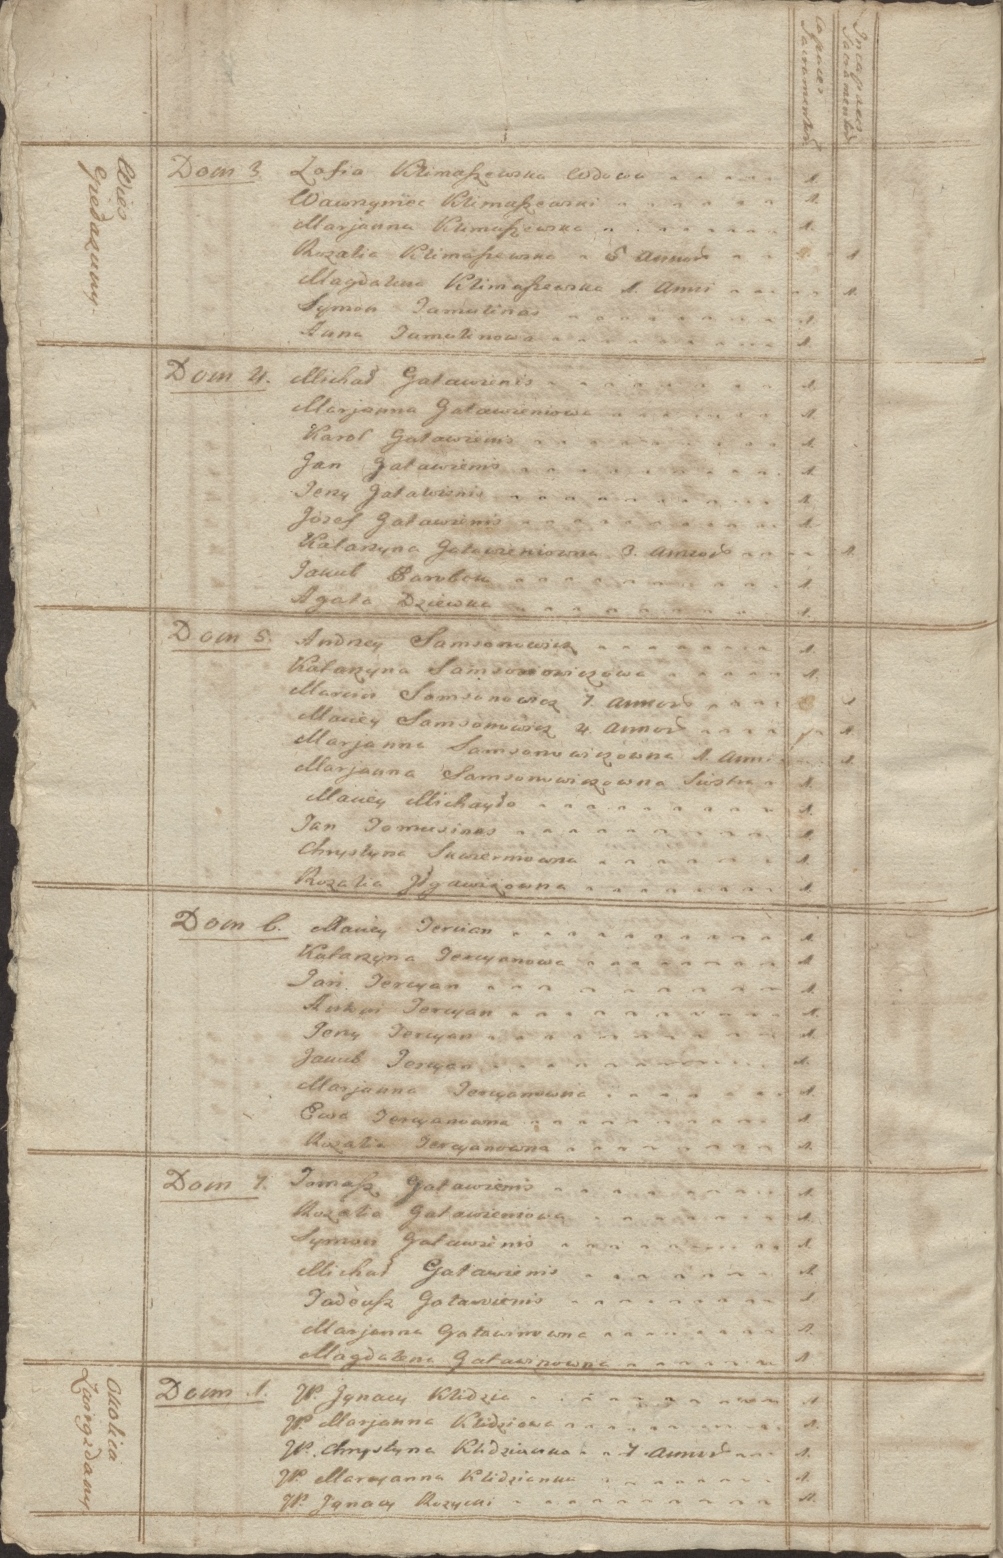 Capaces Sacramentor
Incapaces Sacramentor
Wieś
Dom 3. Zofia Klimaszewska Wdowa 1.
Wawrzyniec Klimaszewski 1.
Marjanna Klimaszewska 1.
Rozalia Klimaszewska 5 annor 1.
Magdalena Klimaszewska 1. anni 1.
Symon Tamulinas 1.
Anna Tamulinowa 1.
Dom 4. Michał Gatawienis 1.
Marjanna Gatawieniowa 1.
Karol Gatawienis 1.
Jan Gatawienis 1.
Jerzy Gatawienis 1.
Józef Gatawienis 1.
Katarzyna Gatawieniowna 3. annor 1.
Jakub Parobek 1.
Agata Dziewka 1.
Dom 5. Andrzey Samsonowicz 1.
Katarzyna Samsonowiczowa 1.
Marcin Samsonowicz 7 annor 1
Maciey Samsonowicz 4 annor 1.
Marjanna Samsonowiczowna 1. anni 1.
Marjanna Samsonowiczowna Siostra 1.
Maciey Michayło 1.
Jan Tomusinas 1.
Chrystyna 1.
Rozalia 1.
Dom 6. Maciey Tercian 1.
Katarzyna Tercyanowa 1.
Jan Tercyan 1.
Antoni Tercyan 1.
Jerzy Tercyan 1.
Jakub Tercyan 1.
Marjanna Tercyanowna 1.
Ewa Tercyanowna 1.
Rozalia Tercyanowna 1.
Dom 7. Tomasz Gatawienis 1.
Rozalia Gatawieniowa 1.
Symon Gatawienis 1.
Michał Gatawienis 1.
Tadeusz Gatawienis 1.
Marjanna Gatawinowna 1.
Magdalena Gatawinowna 1.
Okolica
Dom 1. JP. Jgnacy Klidzia 1.
JP. Marjanna Klidziowa 1.
JP. Chrystyna Klidzianka 7 annor 1.
JP. Maryanna Klidzianka 1.
JP. Jgnacy Rozycki 1.